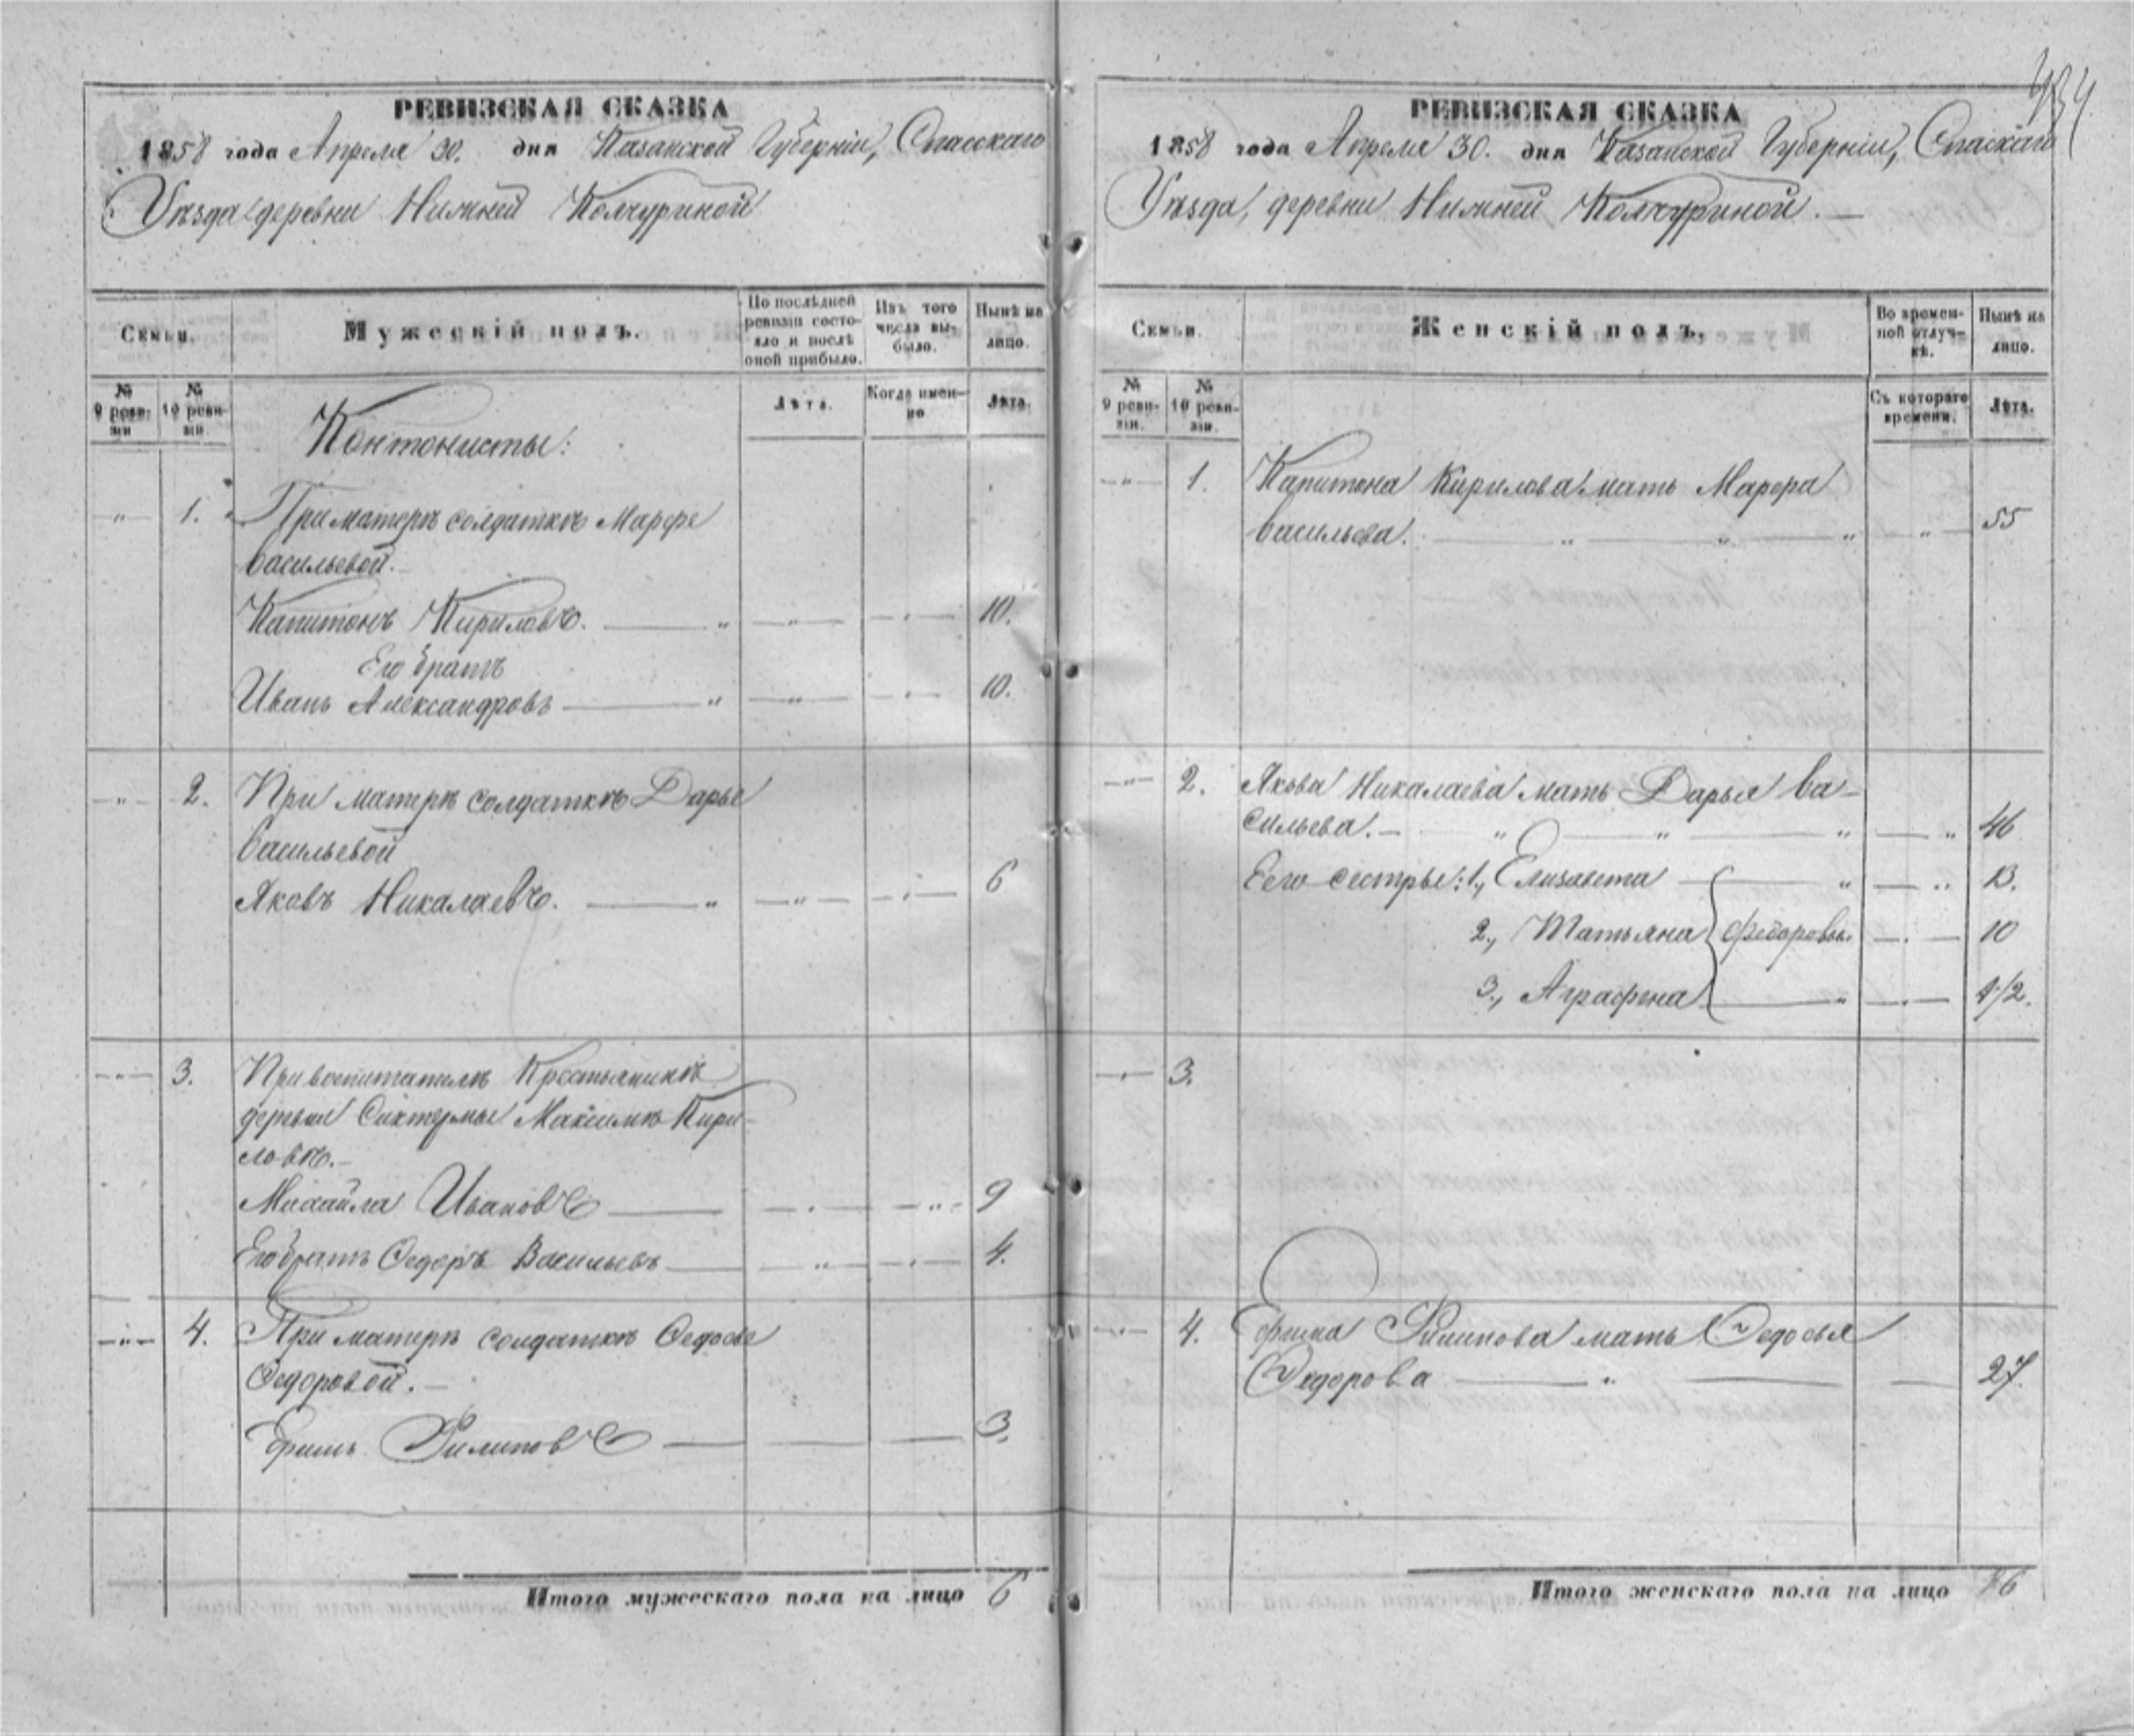 РЕВИЗСКАЯ СКАЗКА
1858 года Апреля 30. дня Казанской Губерніи, Спасскаго
Уѣзда деревни Нижней Колчуриной
Семьи.
Мужескій полъ.
По послѣдней ревизіи состояло и послѣ оной прибыло.
Изъ того числа выбыло.
Нынѣ на лицо.
№ 9 ревизіи
№ 10 ревизіи.
Лѣта.
Когда именно
Лѣта.
Контонисты:
" 1. При матерѣ солдаткѣ Марфе
Васильевой.
Капитонъ Кириловъ. — " — " — 10.
Его братъ
Иванъ Александровъ — " — " — 10.
" 2. При матерѣ солдаткѣ Дарье
Васильевой
Яковъ Николаевъ. — " — " — 6
" 3. При воспитателѣ Крестьянинѣ
деревни Сиктермы Максимѣ Кири-
ловѣ.
Михайла Ивановъ — " — 9
Его братъ Федоръ Васильевъ — " — 4.
" 4. При матерѣ солдаткѣ Федосье
Федоровой. —
Ефимъ Филиповъ — 3.
Итого мужескаго пола на лицо 6
434
РЕВИЗСКАЯ СКАЗКА
1858 года Апреля 30. дня Казанской Губерніи, Спаскаго
Уѣзда, деревни Нижней Колчуриной. —
Семьи.
Женскій полъ.
Во временной отлучкѣ.
Нынѣ на лицо.
№ 9 ревизіи.
№ 10 ревизіи.
Съ котораго времени.
Лѣта.
" 1. Капитона Кирилова мать Марфа
Васильева. — " — " — " — " — 55
" 2. Якова Николаева мать Дарья Ва-
сильева. — " — " — " — " 46
Его сестры: 1., Елизавета — " — " 13.
2., Татьяна Федоровы — 10
3., Аграфена — " — 1/2.
" 3.
" 4. Ефима Филипова мать Федосья
Федорова — " — 27.
Итого женскаго пола на лицо 6